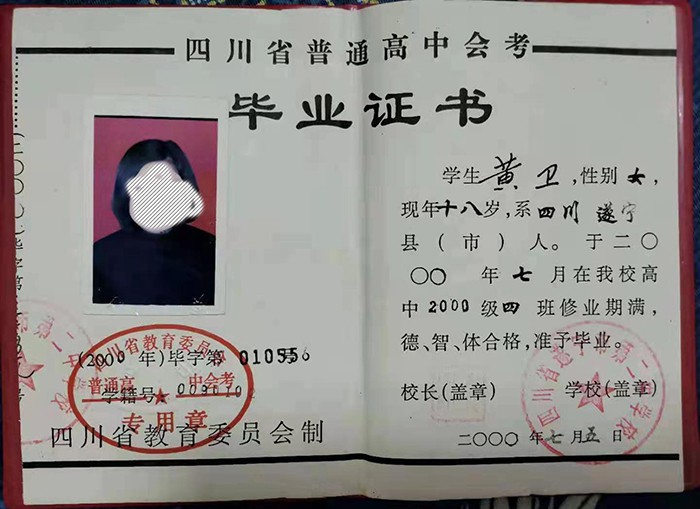 四川省普通高中会考
毕业证书
学生黄卫,性别女,
现年十八岁,系四川 遂宁
县(市)人。于二〇
〇〇 年 七 月在我校高
中2000级四 班修业期满,
德、智、体合格,准予毕业。
校长(盖章) 学校(盖章)
二〇〇〇年七月五日
(2000 年)毕字第
学籍号
四川省教育委员会制
四川省教育委员会
普通高 中会考
专用章
四川省遂宁 第二中学校